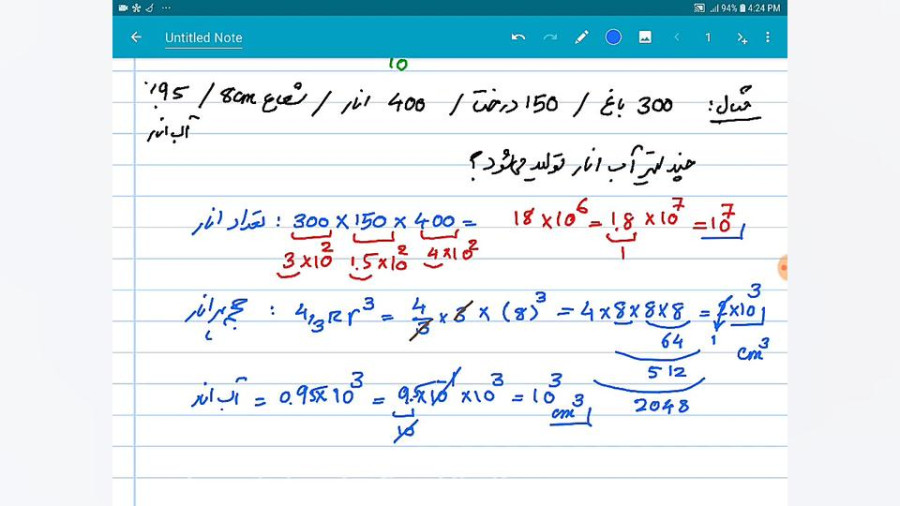 94% 4:24 PM
Untitled Note
1
10
مثال: 300 باغ / 150 درخت / 400 انار / شعاع 8cm / 95%
آب انار
چند لیتر آب انار تولید میشود؟
تعداد انار : 300 × 150 × 400 = 18 × 10⁶ = 1.8 × 10⁷ = 10⁷
3×10² 1.5×10² 4×10² 1
حجم هر انار : 4/3 π r³ = 4/3 × 3 × (8)³ = 4 × 8 × 8 × 8 = 2×10³
64 1 cm³
512
آب انار = 0.95×10³ = 9.5×10⁻¹ ×10³ = 10³ cm³
10
2048